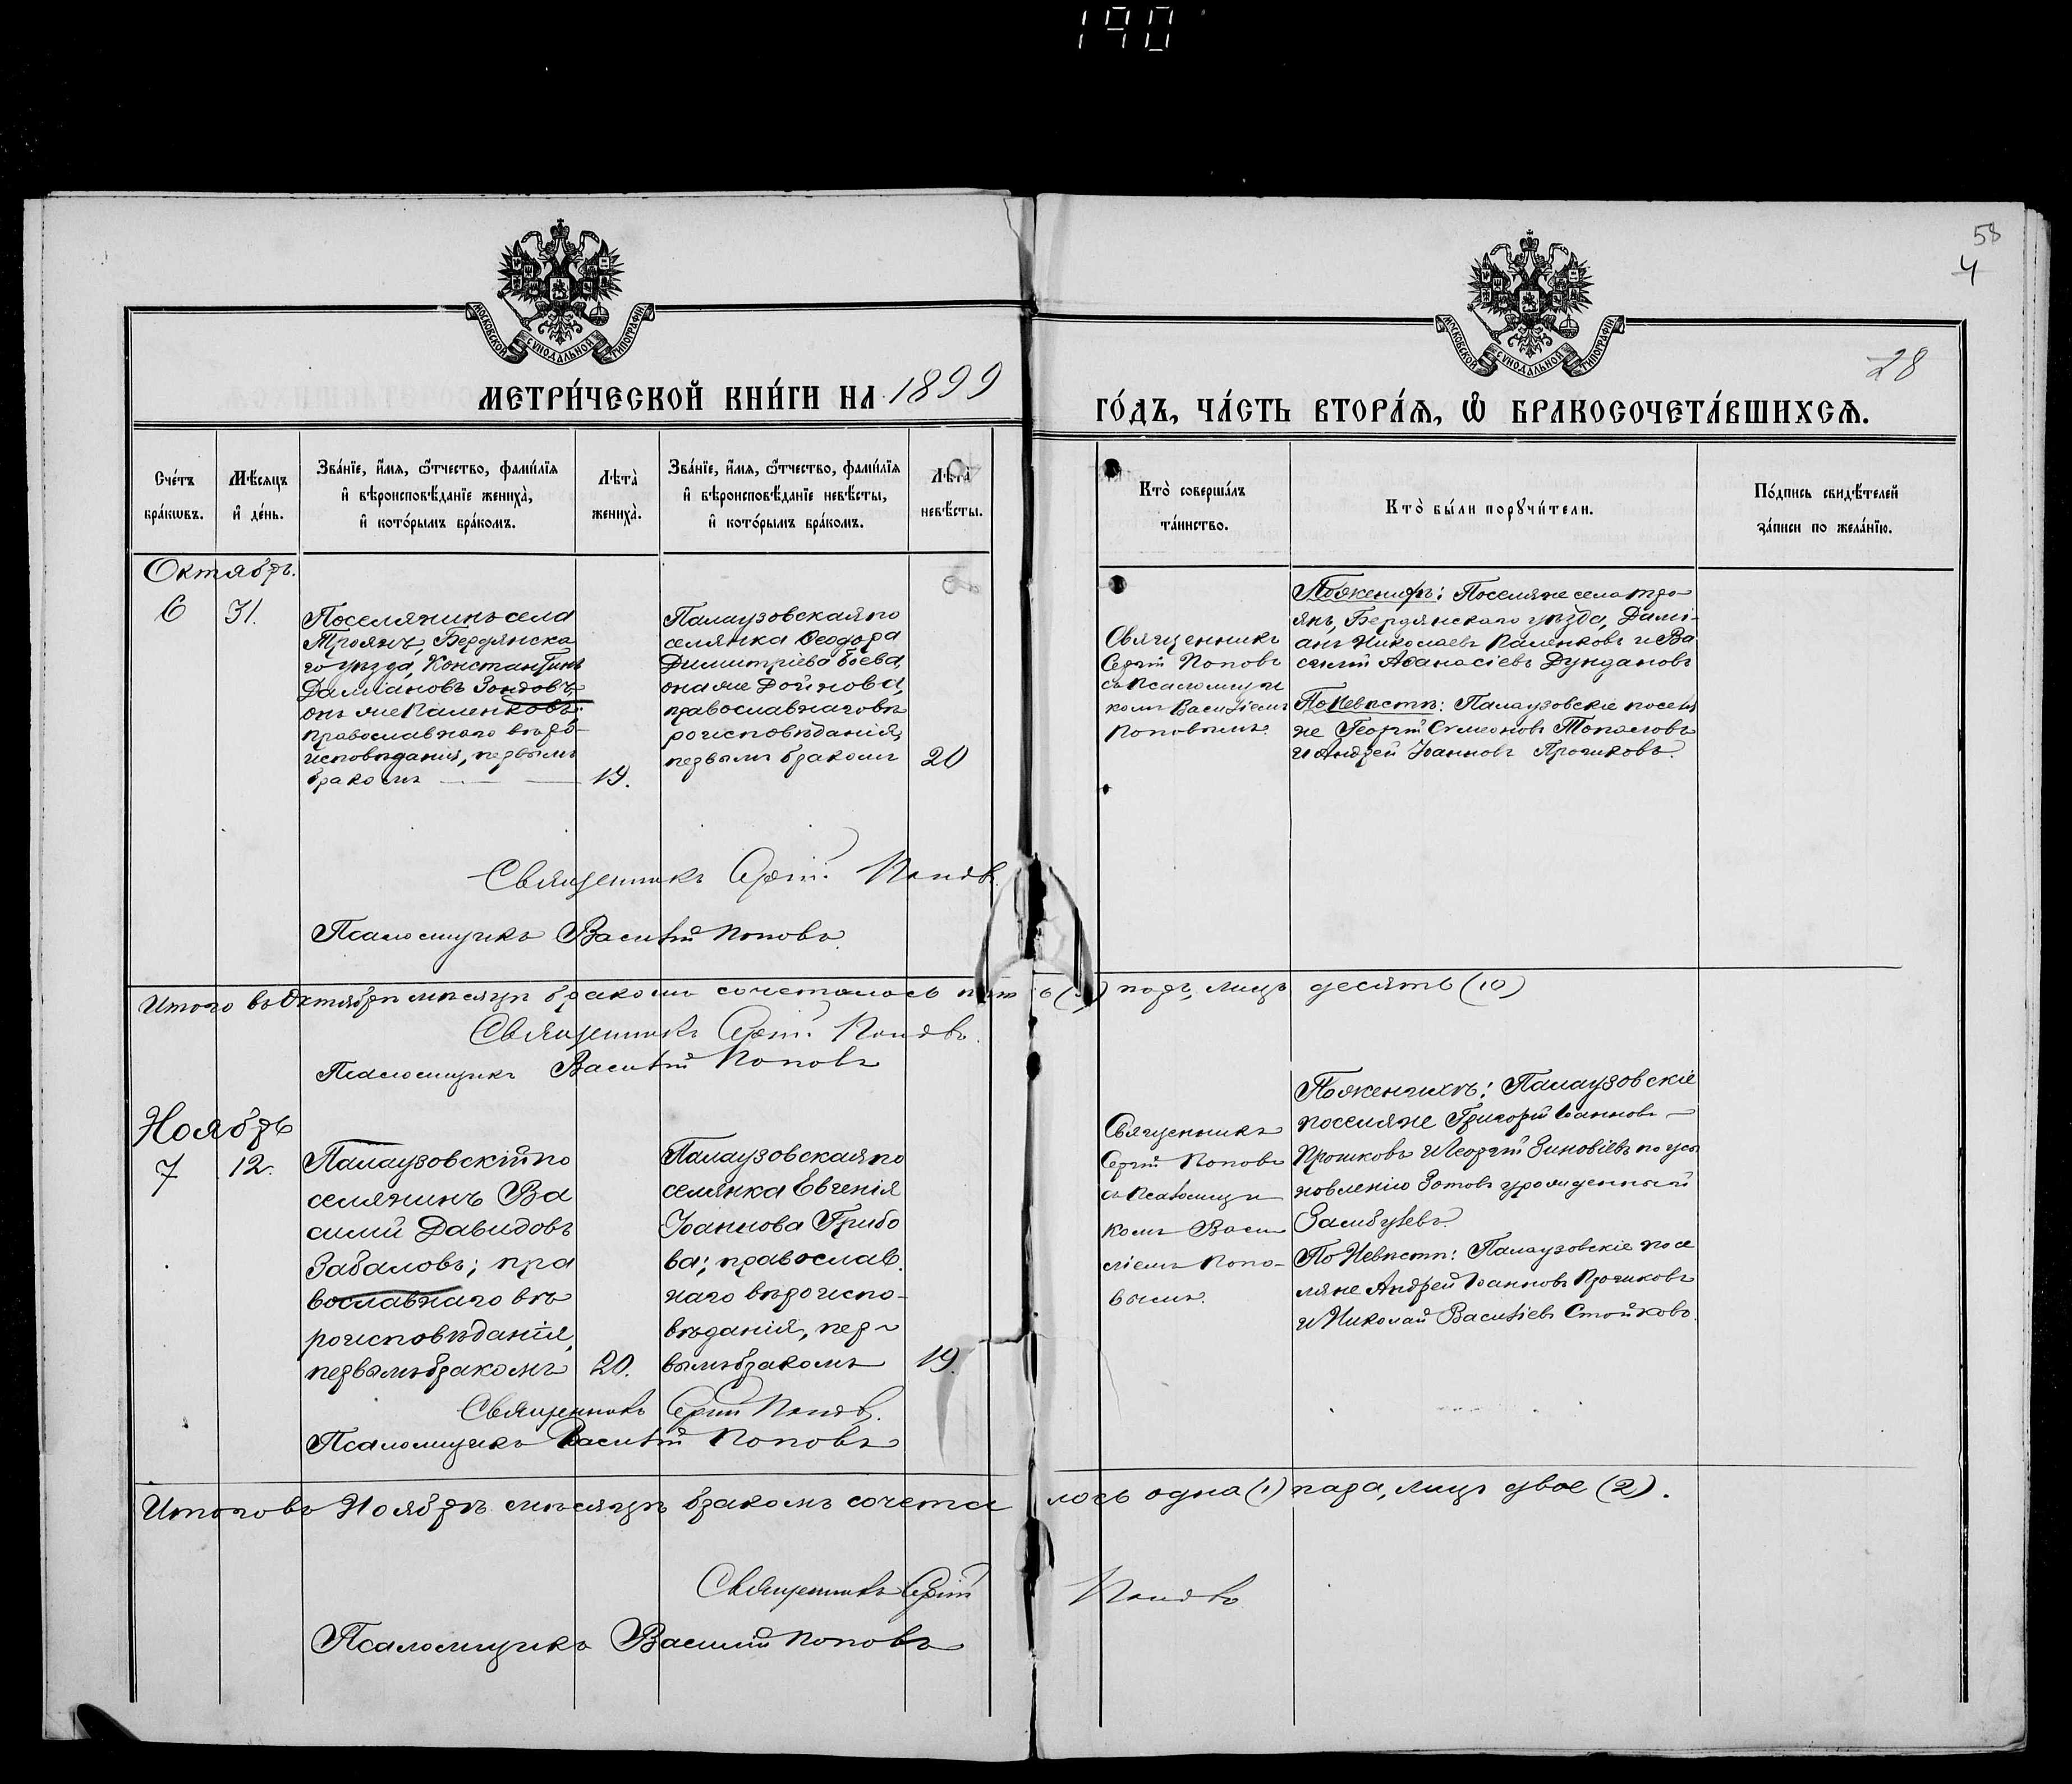 190
58
4
28
МОСКОВСКОЙ СѴНОДАЛЬНОЙ ТИПОГРАФІИ
МОСКОВСКОЙ СѴНОДАЛЬНОЙ ТИПОГРАФІИ
МЕТРИ́ЧЕСКОЙ КНИ́ГИ НА 1899
ГО́ДЪ, ЧА́СТЬ ВТОРА́Ѧ, Ѽ БРАКОСОЧЕТА́ВШИХСѦ.
Сче́тъ
бра́кѡвъ.
Мѣ́сяцъ
и҆ де́нь.
Зва́нїе, и҆́мя, ѻ҆́тчество, фами́лїя
и҆ вѣроисповѣ́данїе жениха̀,
и҆ кото́рымъ бра́комъ.
Лѣта̀
жениха̀.
Зва́нїе, и҆́мя, ѻ҆́тчество, фами́лїя
и҆ вѣроисповѣ́данїе невѣ́сты,
и҆ кото́рымъ бра́комъ.
Лѣта̀
невѣ́сты.
Кто̀ соверша́лъ
та́инство.
Кто̀ бы́ли порꙋчи́тели.
По́дпись свидѣ́телей
за́писи по жела́нїю.
Октябрь.
6
31.
Поселянинъ села
Троянъ, Бердянска
го уѣзда, Константинъ
Даміановъ Зондовъ,
онъ же Паленковъ;
православнаго вѣро-
исповѣданія, первымъ
бракомъ
19.
Палаузовская по
селянка Ѳеодора
Димитріева Боева,
она же Дойнова,
православнаго вѣ
роисповѣданія,
первымъ бракомъ
20
Священникъ
Сергій Поповъ
съ Псаломщи
комъ Василіемъ
Поповымъ.
По женихѣ: Поселяне села Тро-
янъ, Бердянскаго уѣзда, Дамі-
анъ Николаевъ Паленковъ и Ва
силій Аѳанасіевъ Дундановъ
По Невѣстѣ: Палаузовскіе поселя
не Георгій Сѵмеоновъ Топаловъ
и Андрей Іоанновъ Прочковъ.
Священникъ Сергій Поповъ
Псаломщикъ Василій Поповъ
Итого въ Октябрѣ мѣсяцѣ бракомъ сочеталось пять (5) паръ, лицъ десять (10)
Священникъ Сергій Поповъ.
Псаломщикъ Василій Поповъ
Ноябрь
7
12.
Палаузовскій по
селянинъ Ва
силій Давидовъ
Забаловъ; пра
вославнаго вѣ
роисповѣданія,
первымъ бракомъ
20.
Палаузовская по
селянка Евгенія
Іоаннова Грибо
ва; православ
наго вѣроиспо-
вѣданія, пер-
вымъ бракомъ
19.
Священникъ
Сергій Поповъ
съ Псаломщи
комъ Васи
ліемъ Попо-
вымъ.
По женихѣ: Палаузовскіе
поселяне Григорій Іоанновъ
Прочковъ и Георгій Зиновіевъ по усы
новленію Зотовъ урожденный
По Невѣстѣ: Палаузовскіе посе
ляне Андрей Іоанновъ Прочковъ
и Николай Василіевъ Стойковъ.
Священникъ Сергій Поповъ.
Псаломщикъ Василій Поповъ
Итого въ Ноябрѣ мѣсяцѣ бракомъ сочеталось одна (1) пара, лицъ двое (2).
Священникъ Сергій Поповъ
Псаломщикъ Василій Поповъ